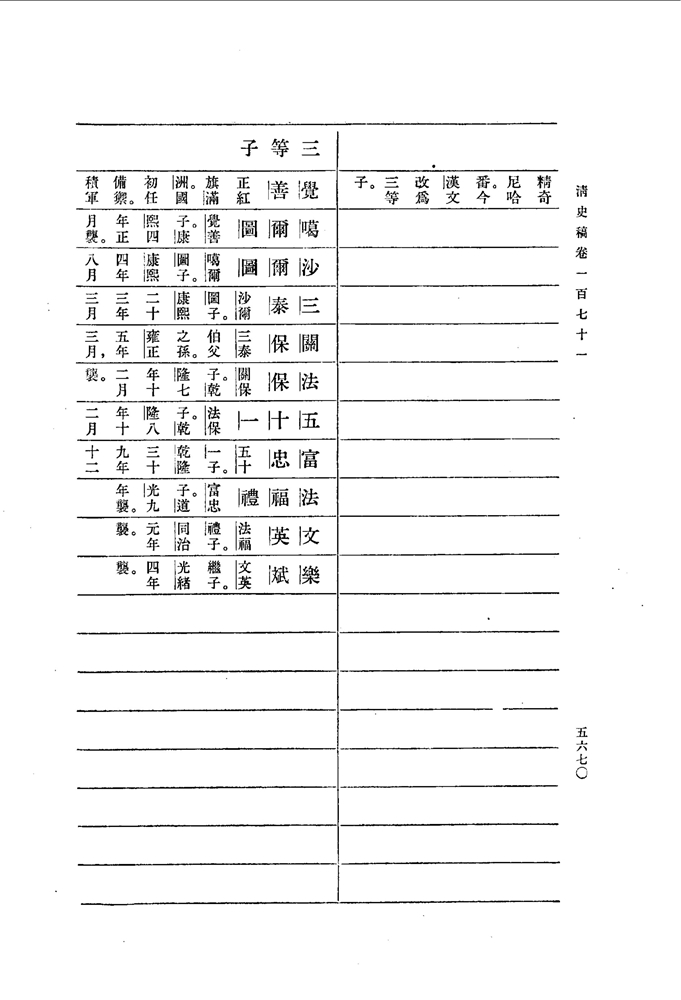 清史稿卷一百七十一
五六七〇
精奇尼哈番。今漢文改爲三等子。
三等子
覺善 正紅旗滿洲。國初任備禦。積軍
噶爾圖 覺善子。康熙四年正月襲。
沙爾圖 噶爾圖子。康熙四年八月
三泰 沙爾圖子。康熙二十三年三月
關保 三泰伯父之孫。雍正五年三月，
法保 關保子。乾隆七年十二月襲。
五十一 法保子。乾隆八年十二月
富忠 五十一子。乾隆三十九年十二
法福禮 富忠子。道光九年襲。
文英 法福禮子。同治元年襲。
樂斌 文英繼子。光緒四年襲。